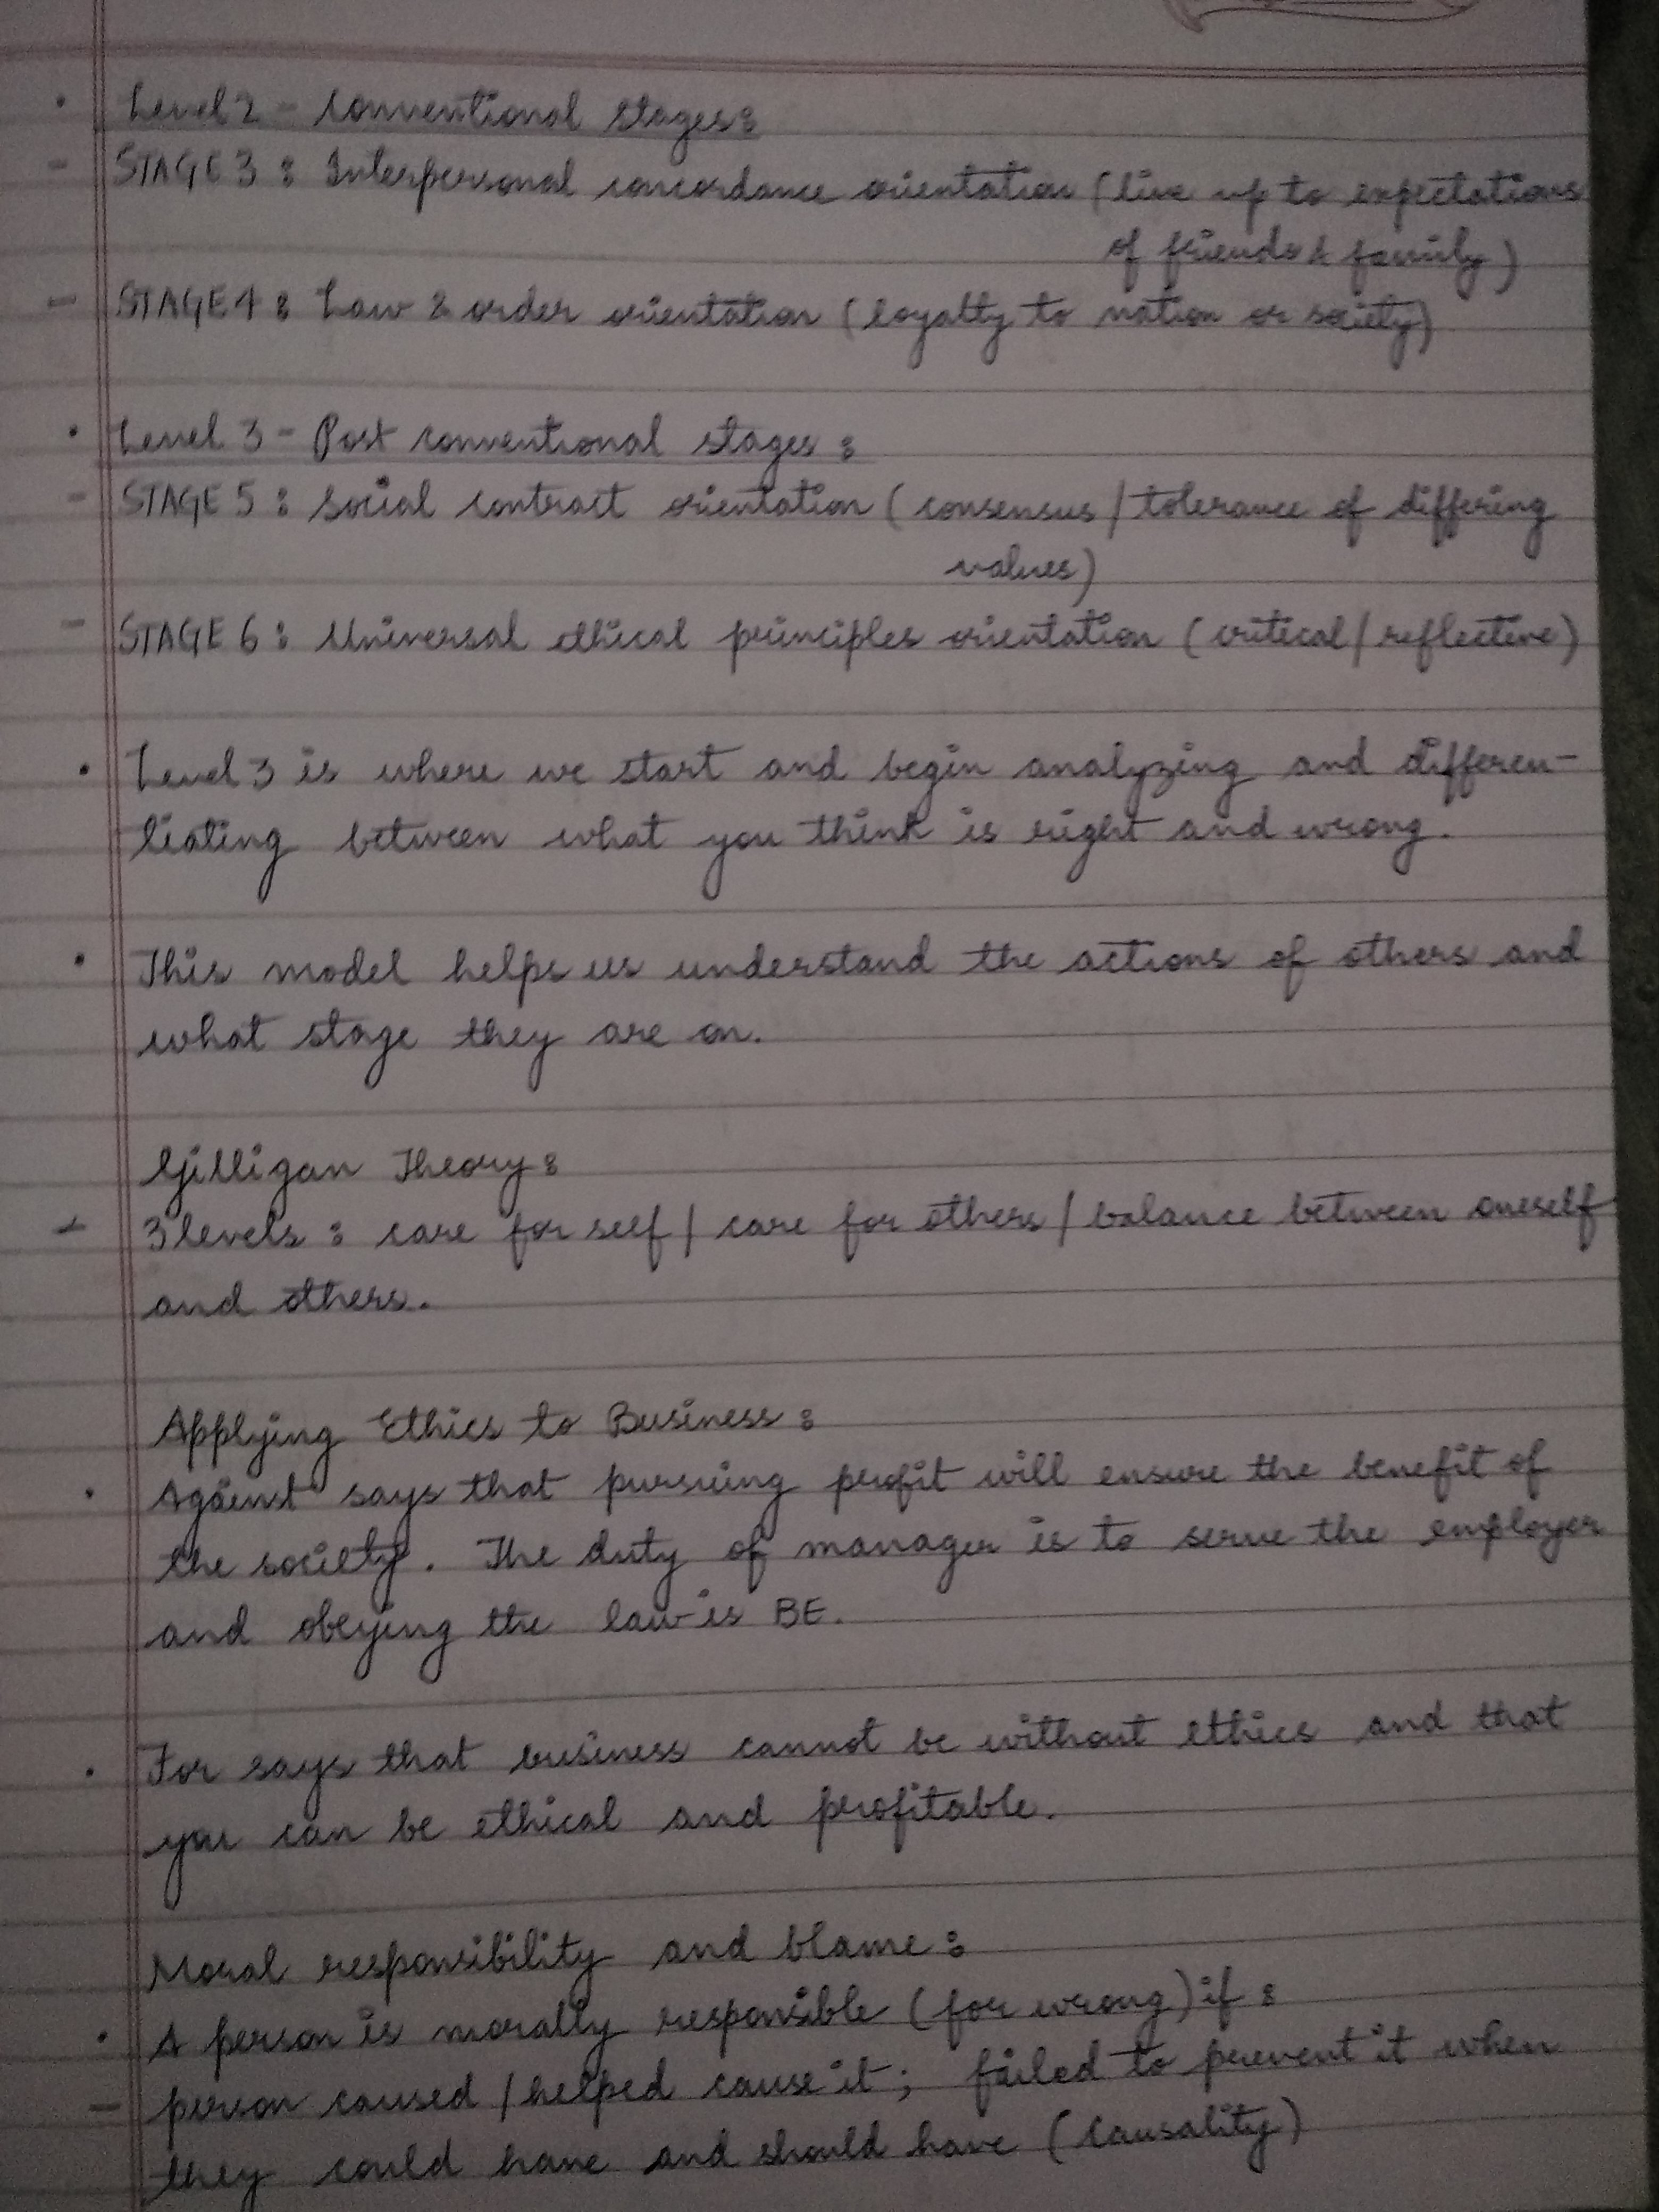 • Level 2 - Conventional stages:
- STAGE 3 : Interpersonal concordance orientation (live up to expectations
of friends & family)
- STAGE 4 : Law & order orientation (loyalty to nation or society)
• Level 3 - Post conventional stages :
- STAGE 5 : Social contract orientation (consensus / tolerance of differing
values)
- STAGE 6 : Universal ethical principles orientation (critical / reflective)
• Level 3 is where we start and begin analyzing and differen-
tiating between what you think is right and wrong.
• This model helps us understand the actions of others and
what stage they are on.
Gilligan Theory :
- 3 levels : care for self / care for others / balance between oneself
and others.
Applying Ethics to Business :
• Against says that pursuing profit will ensure the benefit of
the society. The duty of manager is to serve the employer
and obeying the law is BE.
• For says that business cannot be without ethics and that
you can be ethical and profitable.
Moral responsibility and blame :
• A person is morally responsible (for wrong) if :
- person caused / helped cause it; failed to prevent it when
they could have and should have (causality)